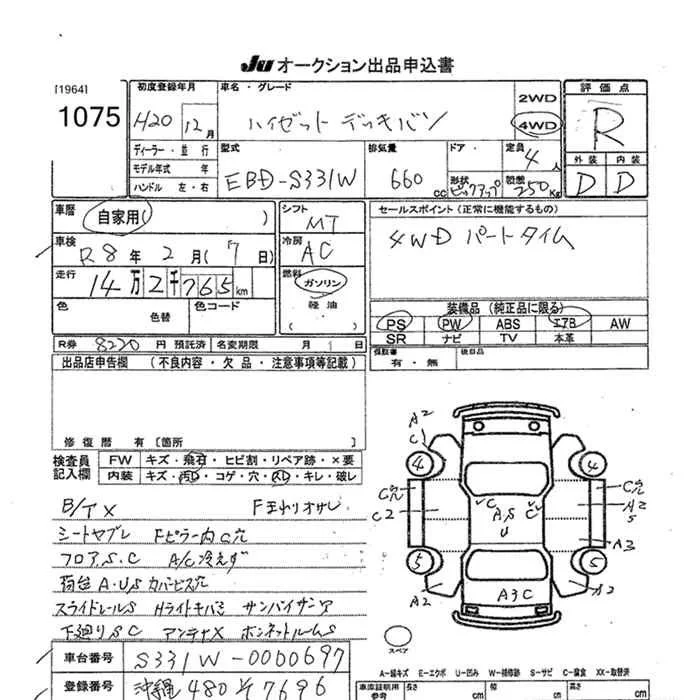 JU オークション出品申込書
[1964]
1075
初度登録年月
H20 12月
車名・グレード
ハイゼット デッキバン
2WD
4WD
評価点
R
外装 内装
D D
ディーラー・並行
モデル年式 年
ハンドル 左・右
型式
EBD-S331W
排気量
660 cc
ドア・形状
ピックアップ
定員
4人
積載
250kg
車歴
自家用( )
シフト
MT
セールスポイント(正常に機能するもの)
4WD パートタイム
車検
R8年2月(17日)
冷房
AC
走行
14万2千765km
燃料
ガソリン
軽油
( )
色
色替
色コード
装備品 (純正品に限る)
PS PW ABS エアB AW
SR ナビ TV 本革
R券 8220 円 預託済 名変期限 月 1 日
保証書
有・無
後日品
出品店申告欄 (不良内容・欠品・注意事項等記載)
修復歴 有 [箇所 ]
検査員記入欄
FW キズ・飛石・ヒビ割・リペア跡・×要
内装 キズ・汚れ・コゲ・穴・スレ・キレ・破レ
A2
C1
4
4
C穴
C穴
C2
C
A,S
U
C
A2
S
A3
5
5
A2
A3C
A2
スペア
B/T X
シートヤブレ Fピラー内C穴
フロアS.C A/C冷えず
荷台A・U,S カバービス穴
スライドレールS Hライトキバミ サンバイザーア
下廻りSC アンテナX ボンネットルームS
車台番号 S331W-0000697
登録番号 沖縄 480 そ 7696
A-線キズ E-エクボ U-凹み W-補修跡 S-サビ C-腐食 XX-取替済
車庫証明用
参考
長さ cm 幅 cm 高さ cm